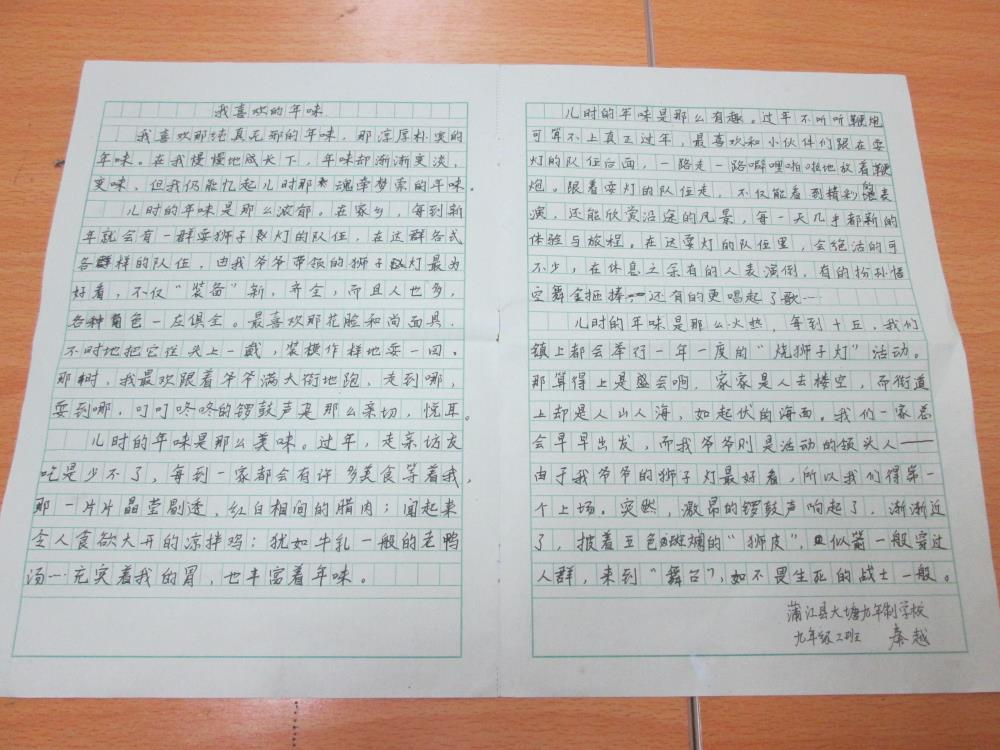 我喜欢的年味
我喜欢那纯真无邪的年味，那淳厚朴实的
年味。在我慢慢地成长下，年味却渐渐变淡，
变味，但我仍能忆起儿时那魂牵梦萦的年味。
儿时的年味是那么浓郁。在家乡，每到新
年就会有一群耍狮子灯的队伍，在这群各式
各样的队伍，由我爷爷带领的狮子灯最为
好看，不仅“装备”新，齐全，而且人也多，
各种角色一应俱全。最喜欢那花脸和尚面具，
不时地把它往头上一戴，装模作样地耍一回。
那时，我最欢跟着爷爷满大街地跑，走到哪，
耍到哪，叮叮咚咚的锣鼓声是那么亲切，悦耳。
儿时的年味是那么美味。过年，走亲访友
吃是少不了，每到一家都会有许多美食等着我，
那一片片晶莹剔透，红白相间的腊肉；闻起来
令人食欲大开的凉拌鸡；犹如牛乳一般的老鸭
汤…充实着我的胃，也丰富着年味。
儿时的年味是那么有趣。过年不听听鞭炮
可算不上真正过年，最喜欢和小伙伴们跟在耍
灯的队伍后面，一路走一路噼哩啪啦地放着鞭
炮。跟着耍灯的队伍走，不仅能看到精彩表
演，还能欣赏沿途的风景，每一天几乎都新的
体验与旅程。在这耍灯的队伍里，会绝活的可
不少，在休息之余有的人表演倒，有的扮孙悟
空舞金箍棒，还有的更唱起了歌…
儿时的年味是那么火热，每到十五，我们
镇上都会举行一年一度的“烧狮子灯”活动。
那算得上是盛会啊，家家是人去楼空，而街道
上却是人山人海，如起伏的海面。我们一家总
会早早出发，而我爷爷则是活动的领头人——
由于我爷爷的狮子灯最好看，所以我们得第一
个上场。突然，激昂的锣鼓声响起了，渐渐近
了，披着五色斑斓的“狮皮”，似箭一般穿过
人群，来到“舞台”，如不畏生死的战士一般。
蒲江县大塘九年制学校
九年级二班 秦越